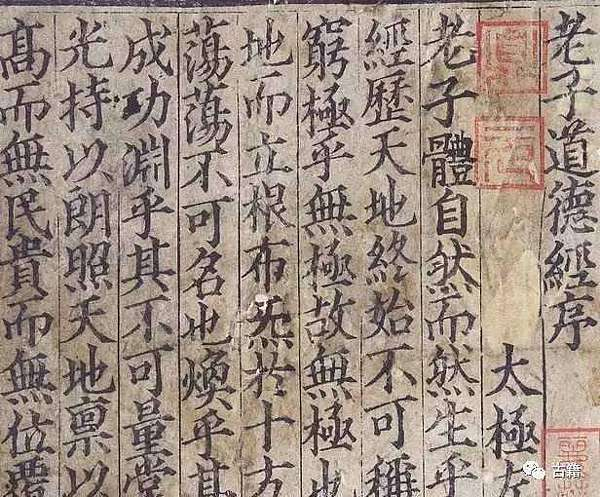 老子道德經序
太極左
老子體自然而然生乎
經歷天地終始不可稱
窮極乎無極故無極也
地而立根布炁扵十方
蕩蕩不可名也煥乎其
成功淵乎其不可量堂
光持以朗照天地稟以
髙而無民貴而無位覆
古籍